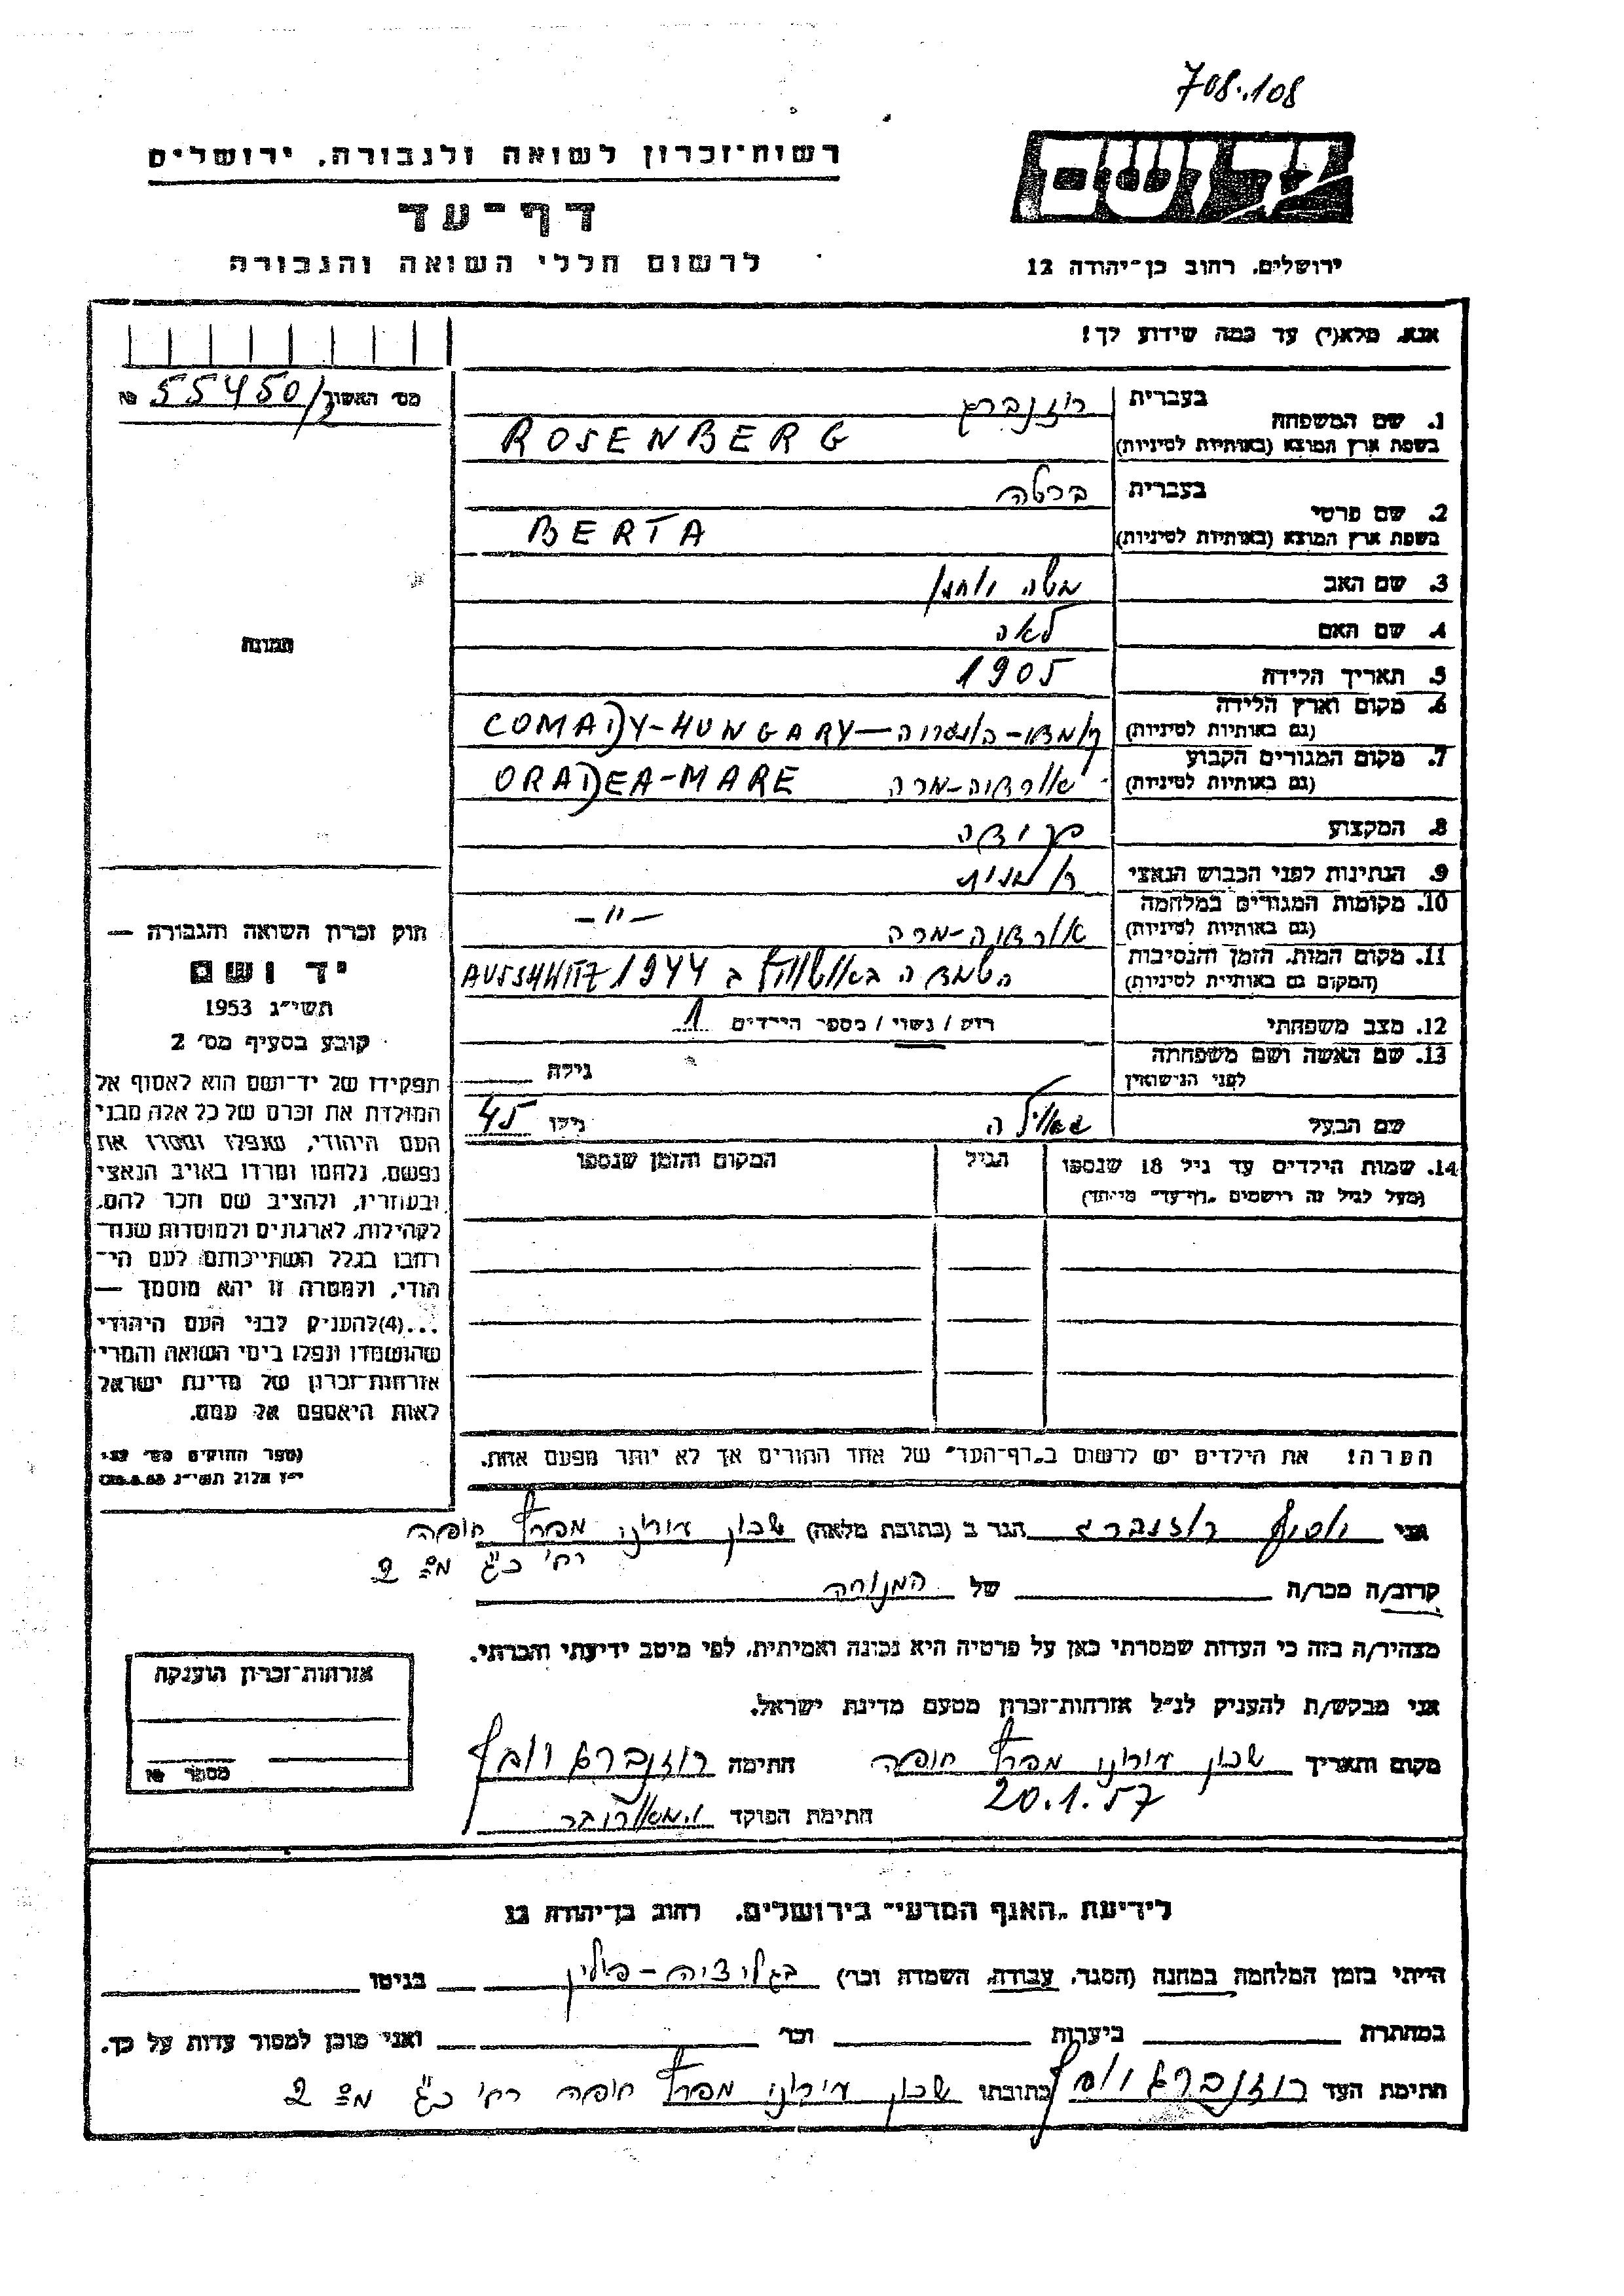 708.108
רשות־זכרון לשואה ולגבורה, ירושלים
דף־עד
לרשום חללי השואה והגבורה
ירושלים, רחוב בן־יהודה 12
אנא, מלא(י) עד כמה שידוע לך!
מס׳ האשור 55450/2 №
בעברית רוזנברג
1. שם המשפחה
בשפת ארץ המוצא (באותיות לטיניות) ROSENBERG
בעברית ברטה
2. שם פרטי
בשפת ארץ המוצא (באותיות לטיניות) BERTA
3. שם האב משה יוחנן
4. שם האם לאה
תמונה
5. תאריך הלידה 1905
6. מקום וארץ הלידה
(גם באותיות לטיניות) קומאדי - הונגריה — COMADY-HUNGARY
7. מקום המגורים הקבוע
(גם באותיות לטיניות) אוראדיה-מרה ORADEA-MARE
8. המקצוע
9. הנתינות לפני הכבוש הנאצי רומנית
10. מקומות המגורים במלחמה
(גם באותיות לטיניות) אוראדיה-מרה -"-
11. מקום המות, הזמן והנסיבות
(המקום גם באותיות לטיניות) הושמדה באושוויץ ב 1944 AUSSHWITZ
12. מצב משפחתי רווק / נשוי / מספר הילדים 1
13. שם האשה ושם משפחתה
לפני הנישואין גילה
שם הבעל גילו 45
14. שמות הילדים עד גיל 18 שנספו הגיל המקום והזמן שנספו
(מעל לגיל זה רושמים "דף־עד" מיוחד)
חוק זכרון השואה והגבורה —
יד ושם
תשי״ג 1953
קובע בסעיף מס׳ 2
תפקידו של יד־ושם הוא לאסוף אל
המולדת את זכרם של כל אלה מבני
העם היהודי, שנפלו ומסרו את
נפשם, נלחמו ומרדו באויב הנאצי
ובעוזריו, ולהציב שם וזכר להם,
לקהילות, לארגונים ולמוסדות שנח־
רבו בגלל השתייכותם לעם הי־
הודי, ולמטרה זו יהא מוסמך —
...(4)להעניק לבני העם היהודי
שהושמדו ונפלו בימי השואה והמרי
אזרחות־זכרון של מדינת ישראל
לאות היאספם אל עמם.
הערה! את הילדים יש לרשום ב"דף־העד" של אחד ההורים אך לא יותר מפעם אחת.
אני יוסף רוזנברג הגר ב (כתובת מלאה) שכון עירוני מפרץ חיפה
רח׳ כ"ג 2
קרוב/ה מכר/ה של המנוחה
מצהיר/ה בזה כי העדות שמסרתי כאן על פרטיה היא נכונה ואמיתית, לפי מיטב ידיעתי והכרתי.
אני מבקש/ת להעניק לנ״ל אזרחות־זכרון מטעם מדינת ישראל.
אזרחות־זכרון הוענקה
מספר №
מקום ותאריך שכון עירוני מפרץ חיפה חתימה רוזנברג יוסף
20.1.57
חתימת הפוקד
לידיעת "האגף המדעי" בירושלים, רחוב בן־יהודה 12
הייתי בזמן המלחמה במחנה (הסגר, עבודה, השמדה וכו׳) בגליציה - פולין בגיטו
במחתרת ביערות וכו׳ ואני מוכן למסור עדות על כך.
חתימת העד רוזנברג יוסף כתובתו שכון עירוני מפרץ חיפה רח׳ כ"ג 2